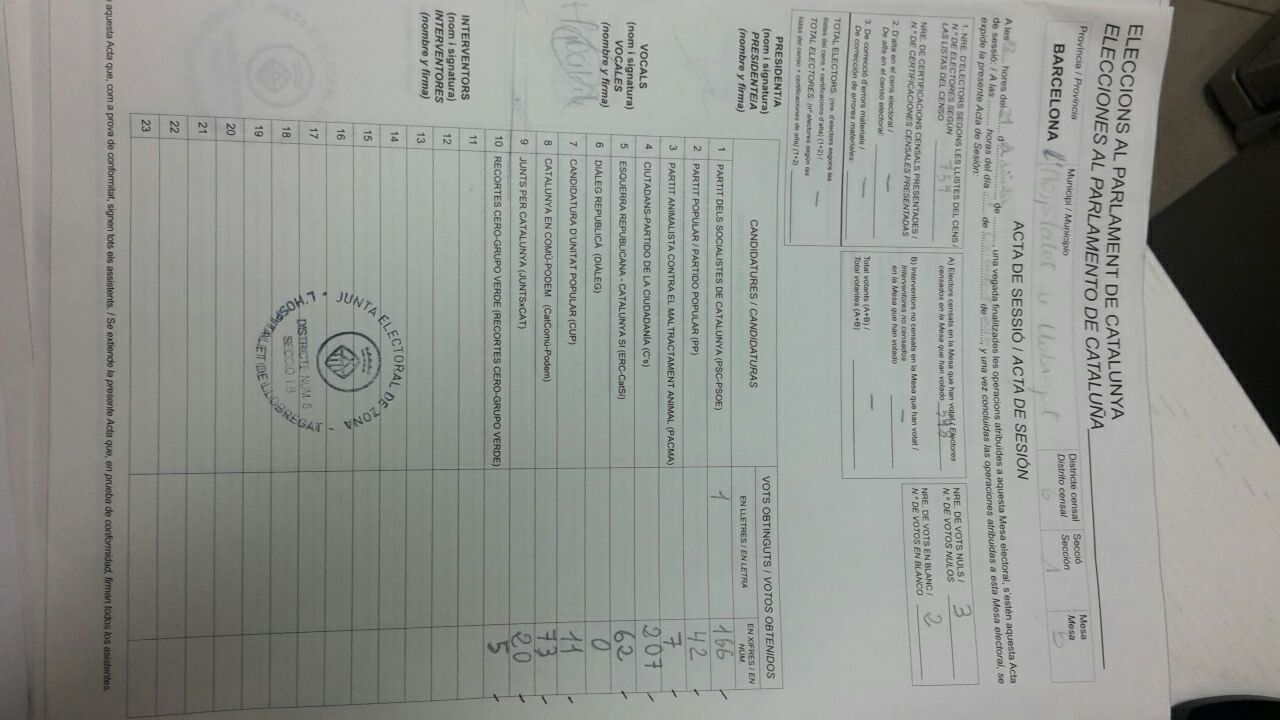 ELECCIONS AL PARLAMENT DE CATALUNYA
ELECCIONES AL PARLAMENTO DE CATALUÑA
Província / Provincia
BARCELONA
Municipi / Municipio
L'Hospitalet
Districte censal
Distrito censal
6
Secció
Sección
1
Mesa
Mesa
B
ACTA DE SESSIÓ / ACTA DE SESIÓN
A les hores del d de una vegada finalitzades les operacions atribuïdes a aquesta Mesa electoral, s'estén aquesta Acta
de sessió: / A las horas del día de de y una vez concluidas las operaciones atribuidas a esta Mesa electoral, se
expide la presente Acta de Sesión:
1. NRE. D'ELECTORS SEGONS LES LLISTES DEL CENS /
N.º DE ELECTORES SEGÚN
LAS LISTAS DEL CENSO
759
NRE. DE CERTIFICACIONS CENSALS PRESENTADES /
N.º DE CERTIFICACIONES CENSALES PRESENTADAS
2. D'alta en el cens electoral /
De alta en el censo electoral: —
3. De correcció d'errors materials /
De corrección de errores materiales: —
TOTAL ELECTORS: (nre. d'electors segons les
llistes del cens + certificacions d'alta) (1+2) /
TOTAL ELECTORES: (nº electores según las
listas del censo + certificaciones de alta) (1+2) —
A) Electors censats en la Mesa que han votat / Electores
censados en la Mesa que han votado 598
B) Interventors no censats en la Mesa que han votat /
Interventores no censados
en la Mesa que han votado —
Total votants (A+B) /
Total votantes (A+B) —
NRE. DE VOTS NULS /
N.º DE VOTOS NULOS 3
NRE. DE VOTS EN BLANC /
N.º DE VOTOS EN BLANCO 2
PRESIDENT/A
(nom i signatura)
PRESIDENTE/A
(nombre y firma)
VOCALS
(nom i signatura)
VOCALES
(nombre y firma)
INTERVENTORS
(nom i signatura)
INTERVENTORES
(nombre y firma)
CANDIDATURES / CANDIDATURAS
VOTS OBTINGUTS / VOTOS OBTENIDOS
EN LLETRES / EN LETRA
EN XIFRES / EN NÚM.
1 PARTIT DELS SOCIALISTES DE CATALUNYA (PSC-PSOE) 1 166
2 PARTIT POPULAR / PARTIDO POPULAR (PP) 42
3 PARTIT ANIMALISTA CONTRA EL MALTRACTAMENT ANIMAL (PACMA) 7
4 CIUTADANS-PARTIDO DE LA CIUDADANÍA (C's) 207
5 ESQUERRA REPUBLICANA - CATALUNYA SÍ (ERC-CatSí) 62
6 DIÀLEG REPUBLICÀ (DIÀLEG) 0
7 CANDIDATURA D'UNITAT POPULAR (CUP) 11
8 CATALUNYA EN COMÚ-PODEM (CatComú-Podem) 73
9 JUNTS PER CATALUNYA (JUNTSxCAT) 20
10 RECORTES CERO-GRUPO VERDE (RECORTES CERO-GRUPO VERDE) 5
11
12
13
14
15
16
17
18
19
20
21
22
23
JUNTA ELECTORAL DE ZONA - L'HOSPITALET DE LLOBREGAT
DISTRICTE NÚM. 6
SECCIÓ 1 B
aquesta Acta que, com a prova de conformitat, signen tots els assistents. / Se extiende la presente Acta que, en prueba de conformidad, firman todos los asistentes.